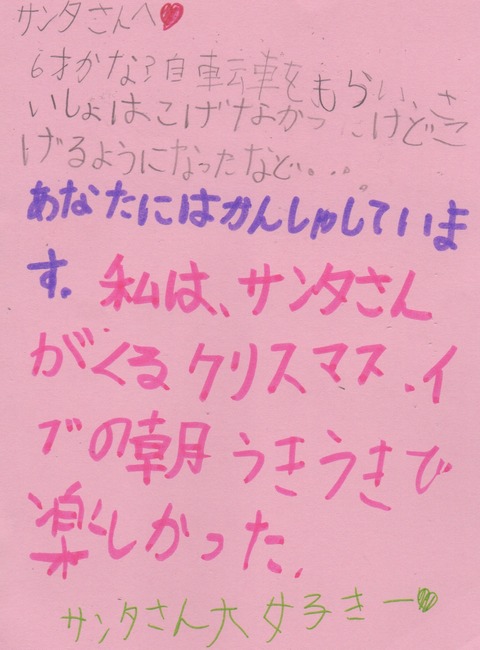 サンタさんへ
6才かな?自転車をもらい、さ
いしょはこげなかったけどこ
げるようになったなど...。
あなたにはかんしゃしていま
す。私は、サンタさん
がくるクリスマス.イ
ブの朝うきうきで
楽しかった.
サンタさん大好きー